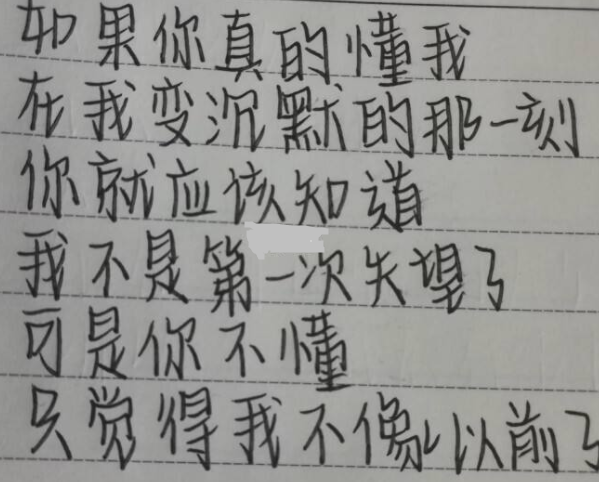 如果你真的懂我
在我变沉默的那一刻
你就应该知道
我不是第一次失望了
可是你不懂
只觉得我不像以前了